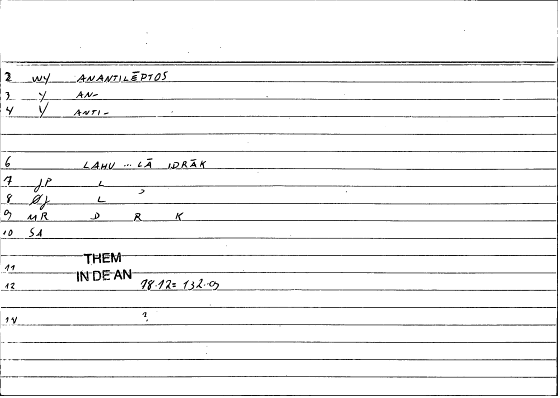 2 WY ANANTILĒPTOS
3 Y AN-
4 Y ANTI-
6 LAHU ... LĀ IDRĀK
7 JP L
8 ØJ L ʾ
9 MR D R K
10 SA
11 THEM
IN DE AN
12 78.12= 132.9
14 ?